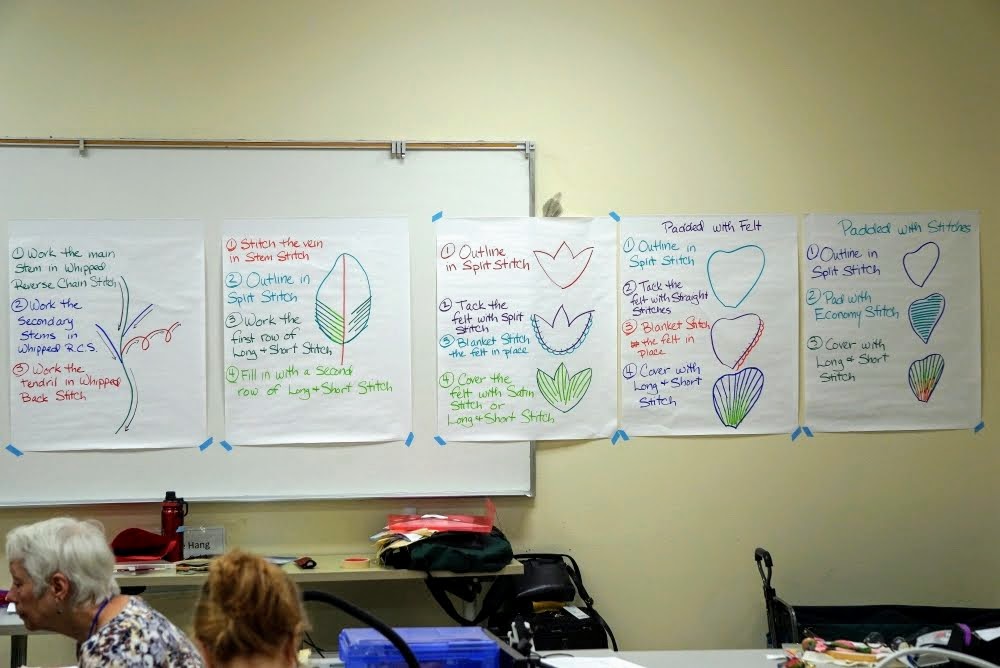 ① Work the main
Stem in Whipped
Reverse Chain Stitch
② Work the
Secondary
Stems in
Whipped R.C.S.
③ Work the
tendril in Whipped
Back Stitch
① Stitch the vein
in Stem Stitch
② Outline in
Split Stitch
③ Work the
first row of
Long & Short Stitch
④ Fill in with a Second
row of Long & Short Stitch
① Outline
in Split Stitch
② Tack the
felt with Split
Stitch
③ Blanket Stitch
the felt in place
④ Cover the
felt with Satin
Stitch or
Long & Short Stitch
Padded with Felt
① Outline in
Split Stitch
② Tack the
felt with Straight
Stitches
③ Blanket Stitch
the felt in
place
④ Cover with
Long & Short
Stitch
Padded with Stitches
① Outline in
Split Stitch
② Pad with
Economy Stitch
③ Cover with
Long & Short
Stitch
Hang